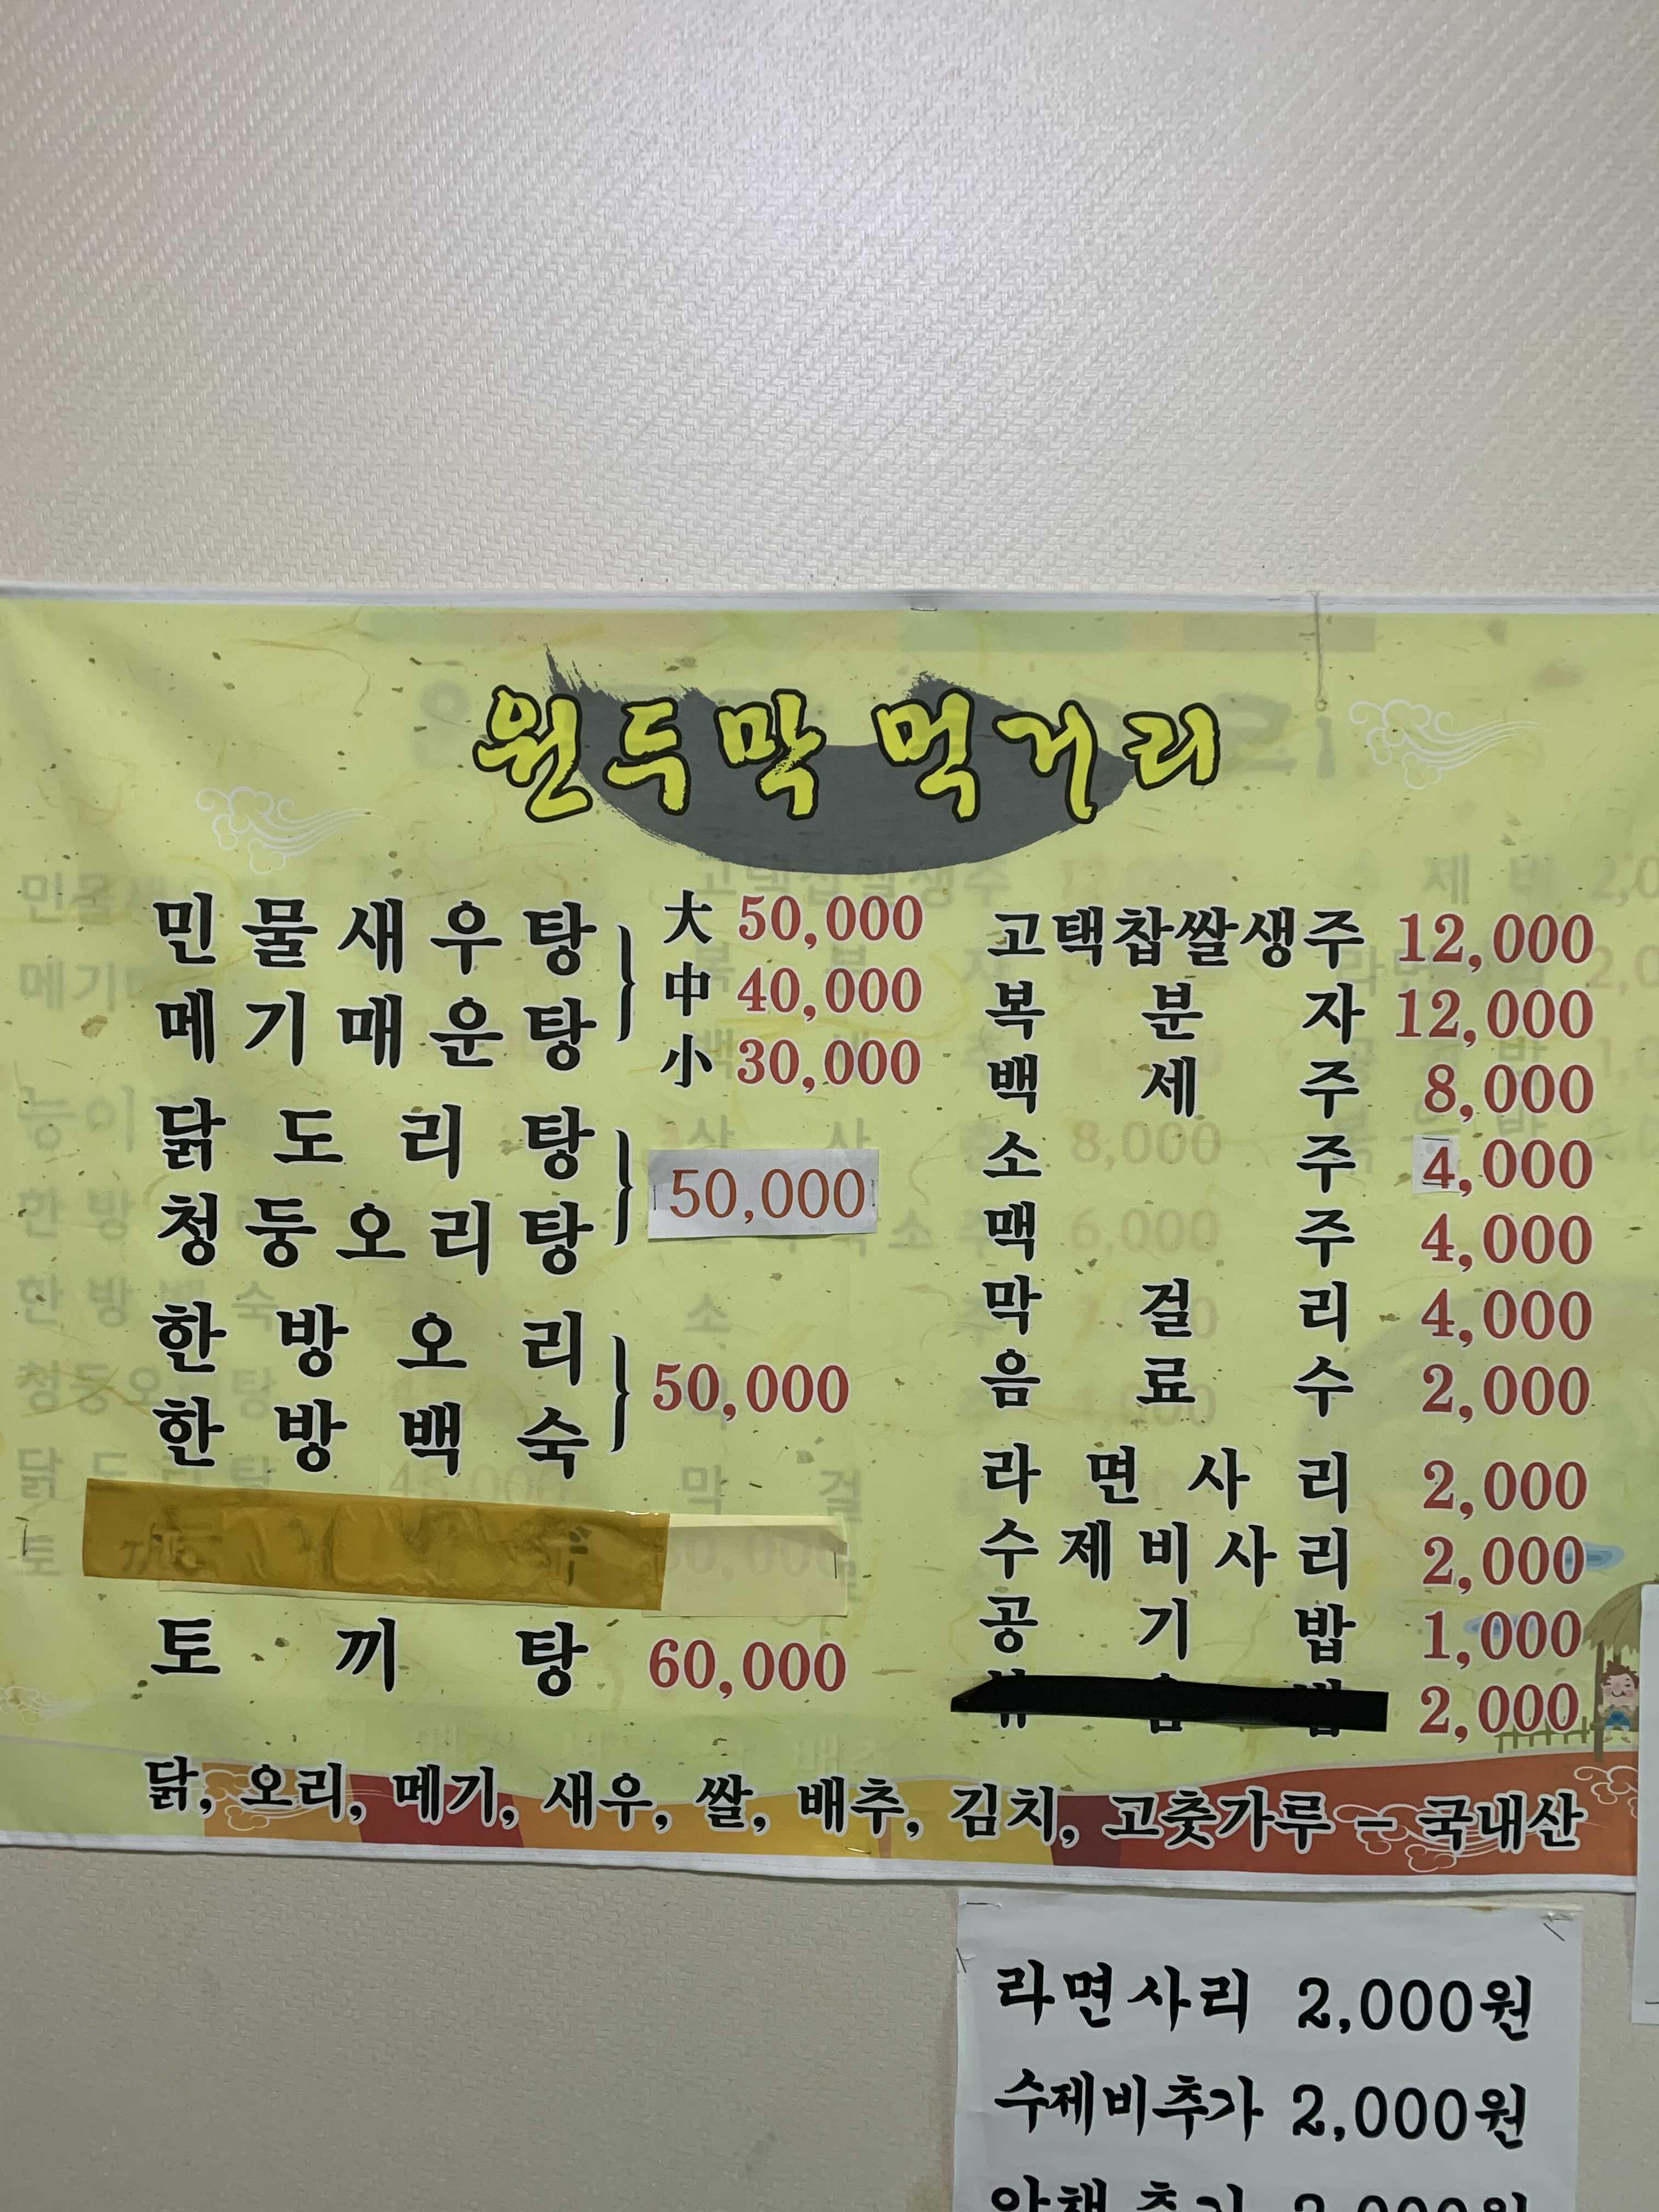 원두막 먹거리
민물새우탕
메기매운탕
大 50,000
中 40,000
小 30,000
닭도리탕
청둥오리탕
50,000
한방오리
한방백숙
50,000
토끼탕 60,000
고택찹쌀생주 12,000
복분자 12,000
백세주 8,000
소주 4,000
맥주 4,000
막걸리 4,000
음료수 2,000
라면사리 2,000
수제비사리 2,000
공기밥 1,000
2,000
닭, 오리, 메기, 새우, 쌀, 배추, 김치, 고춧가루 - 국내산
라면사리 2,000원
수제비추가 2,000원